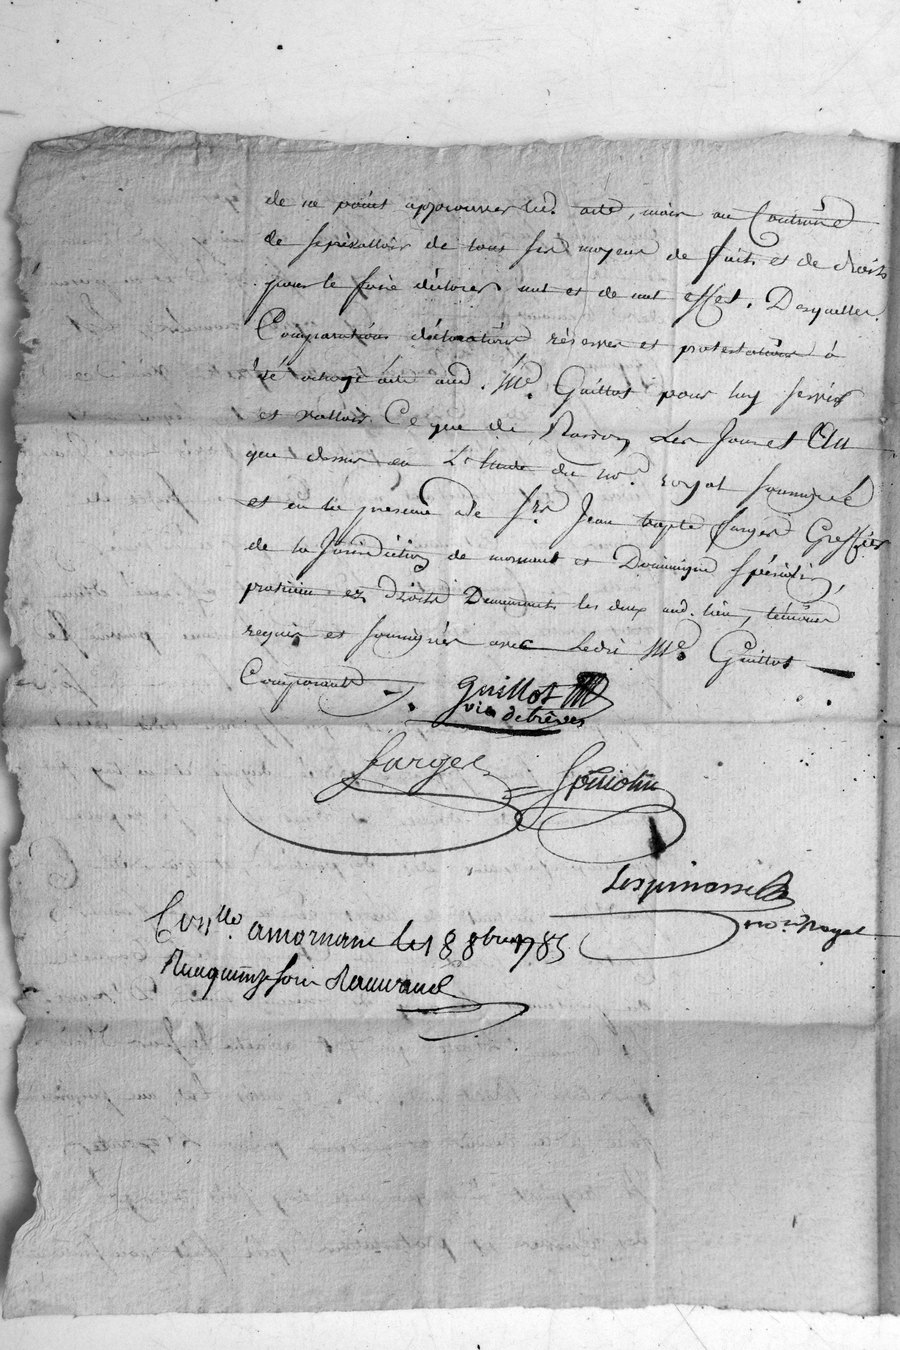 de ne point approuver led. acte, mais au Contraire
de se prévalloir de tous ses moyens de faits et de droits
pour le faire déclarer nul et de nul effet. Desquelles
Comparutions déclarations réserves et protestations a
été octroyé acte aud. Me. Guillot pour luy servir
et valloir Ce que de Raison, Les Jour et An
que dessus en L'étude du no.re royal soussigné
et en la présence de Sr. Jean bapte farges Greffier
de la Jurisdiction de mornant et Dominique
praticien ez droits Demeurants les deux aud. lieu, témoins
requis et soussignés avec Ledit Me. Guillot
Comparant.
Guillot
farges
Lespinasse
no.re Royal
Con.llé a mornant le 18 8bre 1785
Reçu quinze sols